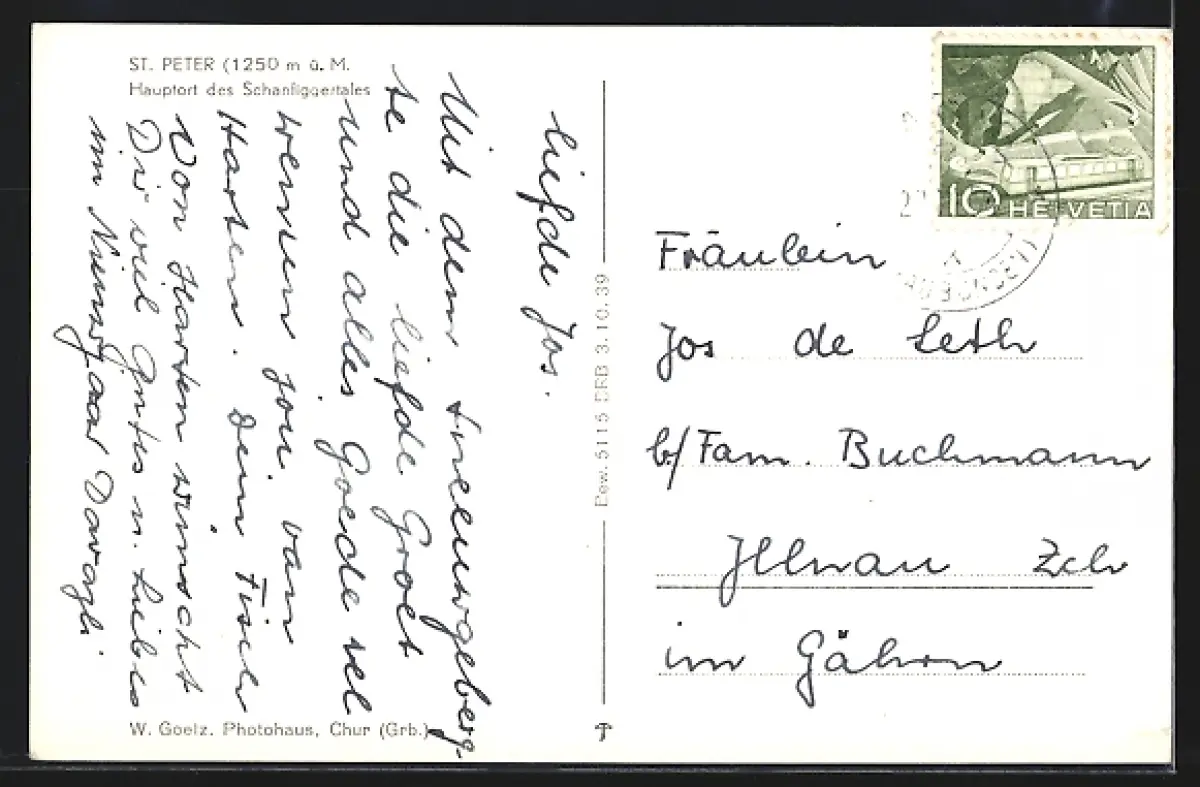 ST. PETER (1250 m ü. M.
Hauptort des Schanfiggertales
liefde Jos.
Uit dem
te die liefde Groet
und alles Goede vel
wensen jou van
Harten. Dein Fisch
Von Harten wünscht
Dir viel Gutes u. Liebes
im
W. Goelz. Photohaus, Chur (Grb.)
Bew. 5115 BRB 3.10.39
10 HELVETIA
Fräulein
Jos de Leth
b/Fam. Buchmann
Illnau Zch
im Gähren